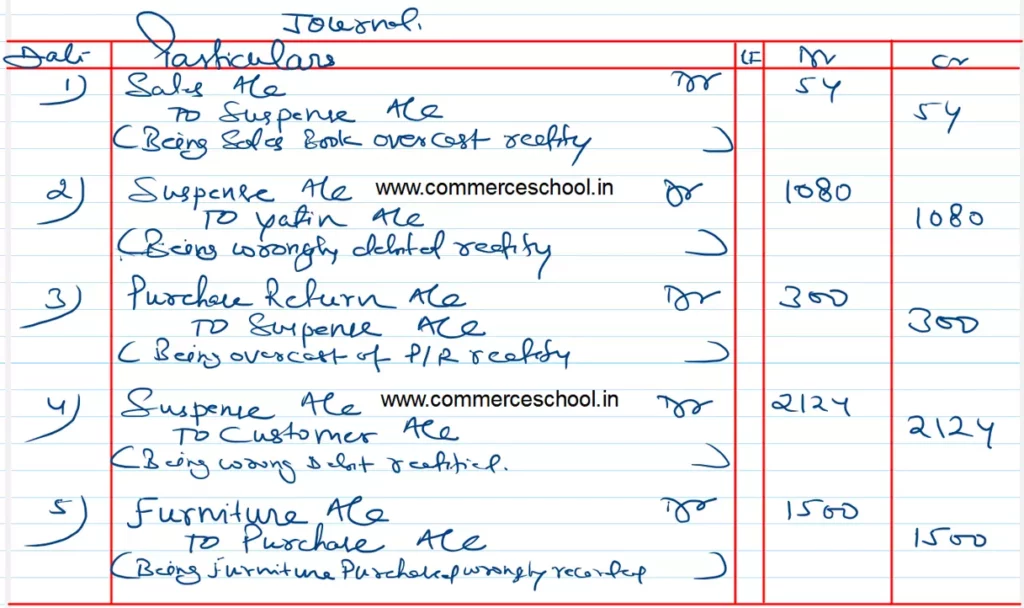 Journal.
Date Particulars LF Dr Cr
1) Sales A/c Dr 54
To Suspense A/c 54
(Being Sales Book overcast rectify)
2) Suspense A/c www.commerceschool.in Dr 1080
To Yatin A/c 1080
(Being wrongly debited rectify)
3) Purchase Return A/c Dr 300
To Suspense A/c 300
(Being overcast of P/R rectify)
4) Suspense A/c www.commerceschool.in Dr 2124
To Customer A/c 2124
(Being wrong Debit rectified.)
5) Furniture A/c Dr 1500
To Purchase A/c 1500
(Being furniture Purchased wrongly recorded)